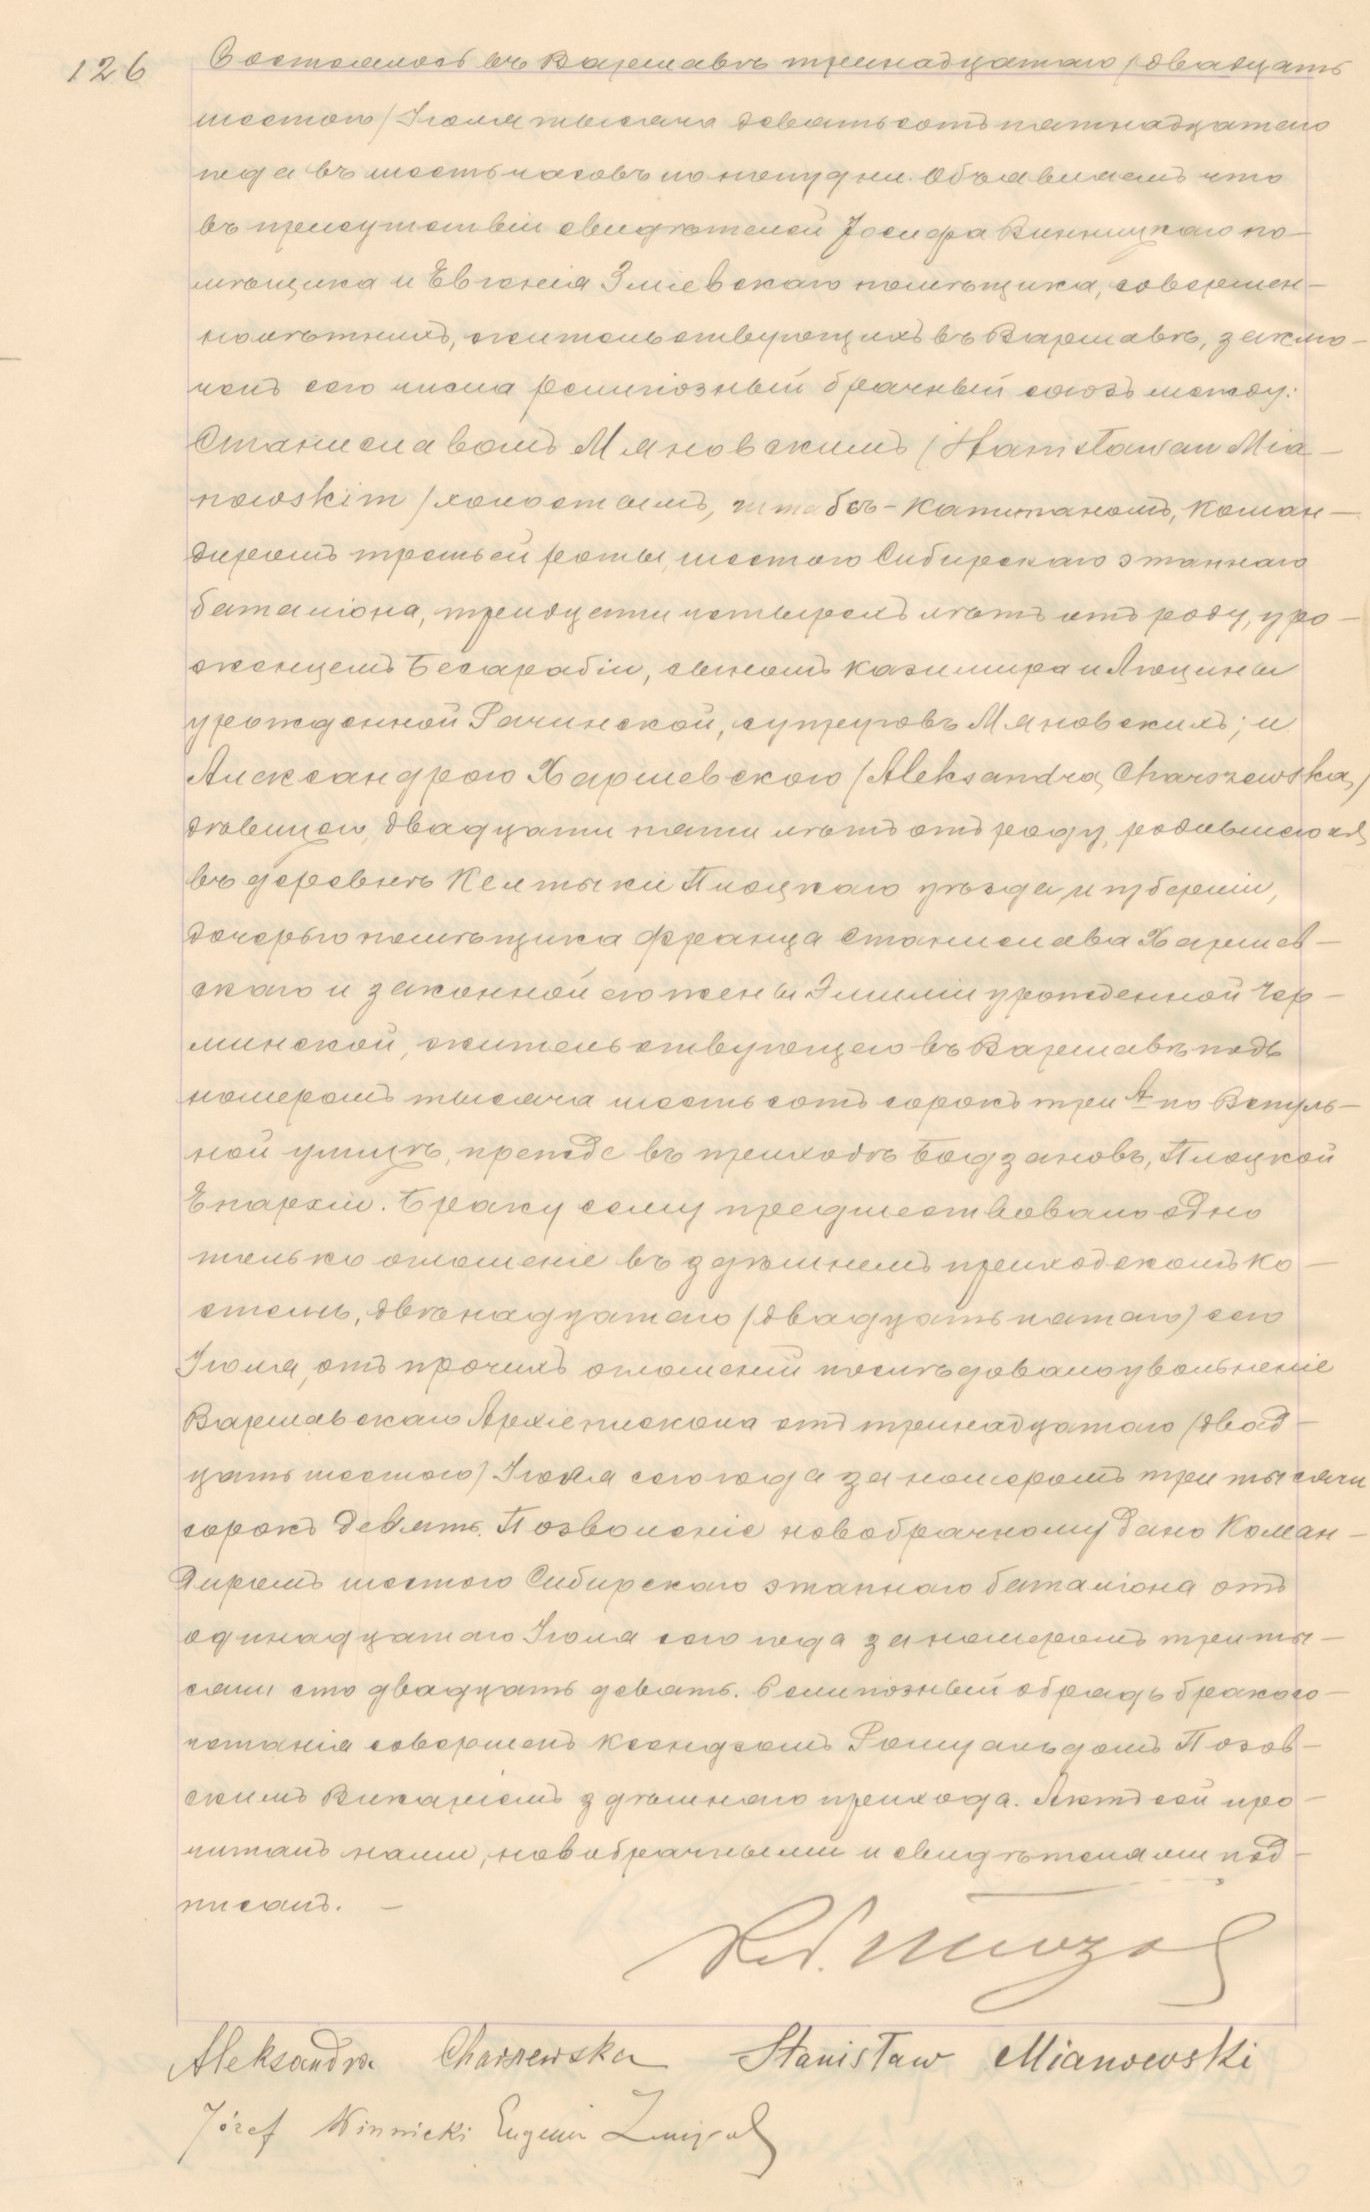 126
Состоялось въ Варшавѣ тринадцатаго /двадцать
шестого/ Іюля тысяча девятьсотъ пятнадцатаго
года въ шесть часовъ по полудни. Объявляемъ что
въ присутствіи свидѣтелей Іосифа Винницкаго по-
мѣщика и Евгенія Зміевскаго помѣщика, совершен-
нолѣтнихъ, жительствующихъ въ Варшавѣ, заклю-
ченъ сего числа религіозный брачный союзъ между:
Станиславомъ Мяновскимъ /Stanisławem Mia-
nowskim/ холостымъ, штабсъ-капитаномъ, коман-
диромъ третьей роты, шестого Сибирскаго этапнаго
баталіона, тридцати четырехъ лѣтъ отъ роду, уро-
женцемъ Бесарабіи, сыномъ Казимира и Люцины
урожденной Рачинской, супруговъ Мяновскихъ; и
Александрою Харшевскою /Aleksandrą Charszewską/
дѣвицею, двадцати пяти лѣтъ отъ роду, родившеюся
въ деревнѣ Келтыки Плоцкаго уѣзда и губерніи,
дочерью помѣщика Франца Станислава Харшев-
скаго и законной его жены Эмиліи урожденной Чер-
минской, жительствующею въ Варшавѣ подъ
номеромъ тысяча шестьсотъ сорокъ три А по Вспуль-
ной улицѣ, прежде въ приходѣ Бодзановъ, Плоцкой
Епархіи. Браку сему предшествовало одно
только оглашеніе въ здѣшнемъ приходскомъ ко-
стелѣ, двѣнадцатаго /двадцать пятаго/ сего
Іюля, отъ прочихъ оглашеній послѣдовало увольненіе
Варшавскаго Архіепископа отъ тринадцатаго /двад-
цать шестого/ Іюля сего года за номеромъ три тысячи
сорокъ девять. Позволеніе новобрачному дано Коман-
диромъ шестого Сибирскаго этапнаго баталіона отъ
одинадцатаго Іюля сего года за номеромъ три ты-
сячи сто двадцать девять. Религіозный обрядъ бракосо-
четанія совершенъ Ксендзомъ Ромуальдомъ Позов-
скимъ Викаріемъ здѣшняго прихода. Актъ сей про-
читанъ нами, новобрачными и свидѣтелями под-
писанъ. —
Aleksandra Charszewska Stanisław Mianowski
Józef Winnicki Eugeni